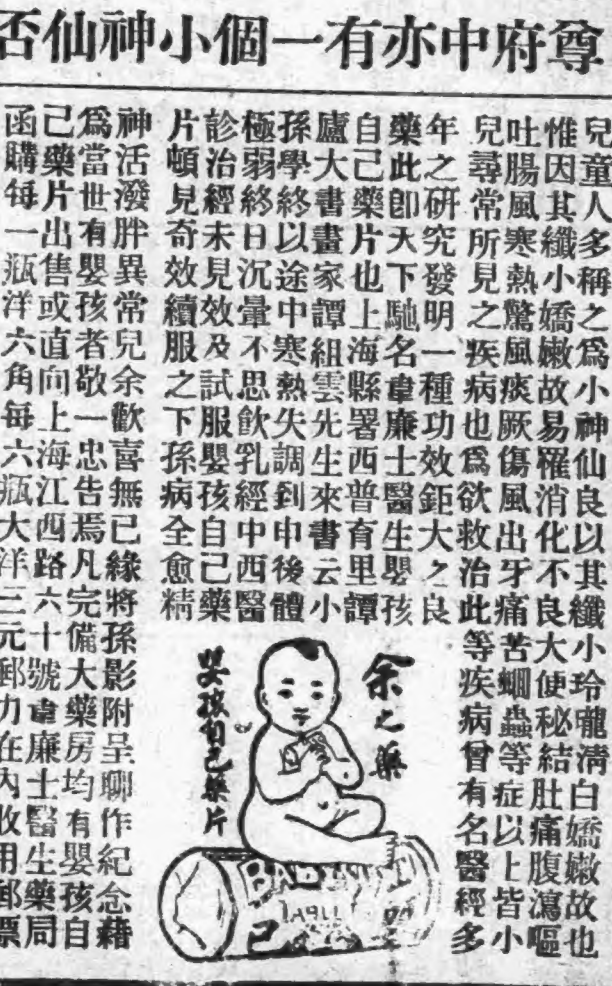 尊府中亦有一個小神仙否
兒童人多稱之爲小神仙良以其纖小玲瓏清白嬌嫩故也
惟因其纖小嬌嫩故易罹消化不良大便秘結肚痛腹瀉嘔
吐腸風寒熱驚風痰厥傷風出牙痛苦蛔蟲等症以上皆小
兒尋常所見之疾病也爲欲救治此等疾病曾有名醫經多
年之研究發明一種功效鉅大之良
藥此卽天下馳名韋廉士醫生嬰孩
自己藥片也上海縣署西普育里譚
廬大書畫家譚組雲先生來書云小
孫學終以途中寒熱失調到申後體
極弱終日沉暈不思飲乳經中西醫
診治經未見效及試服嬰孩自己藥
片頓見奇效續服之下孫病全愈精
神活潑胖異常兒余歡喜無已緣將孫影附呈聊作紀念藉
爲當世有嬰孩者敬一忠告焉凡完備大藥房均有嬰孩自
己藥片出售或直向上海江西路六十號韋廉士醫生藥局
函購每一瓶洋六角每六瓶大洋三元郵力在內收用郵票
余之藥
嬰孩自己藥片
己